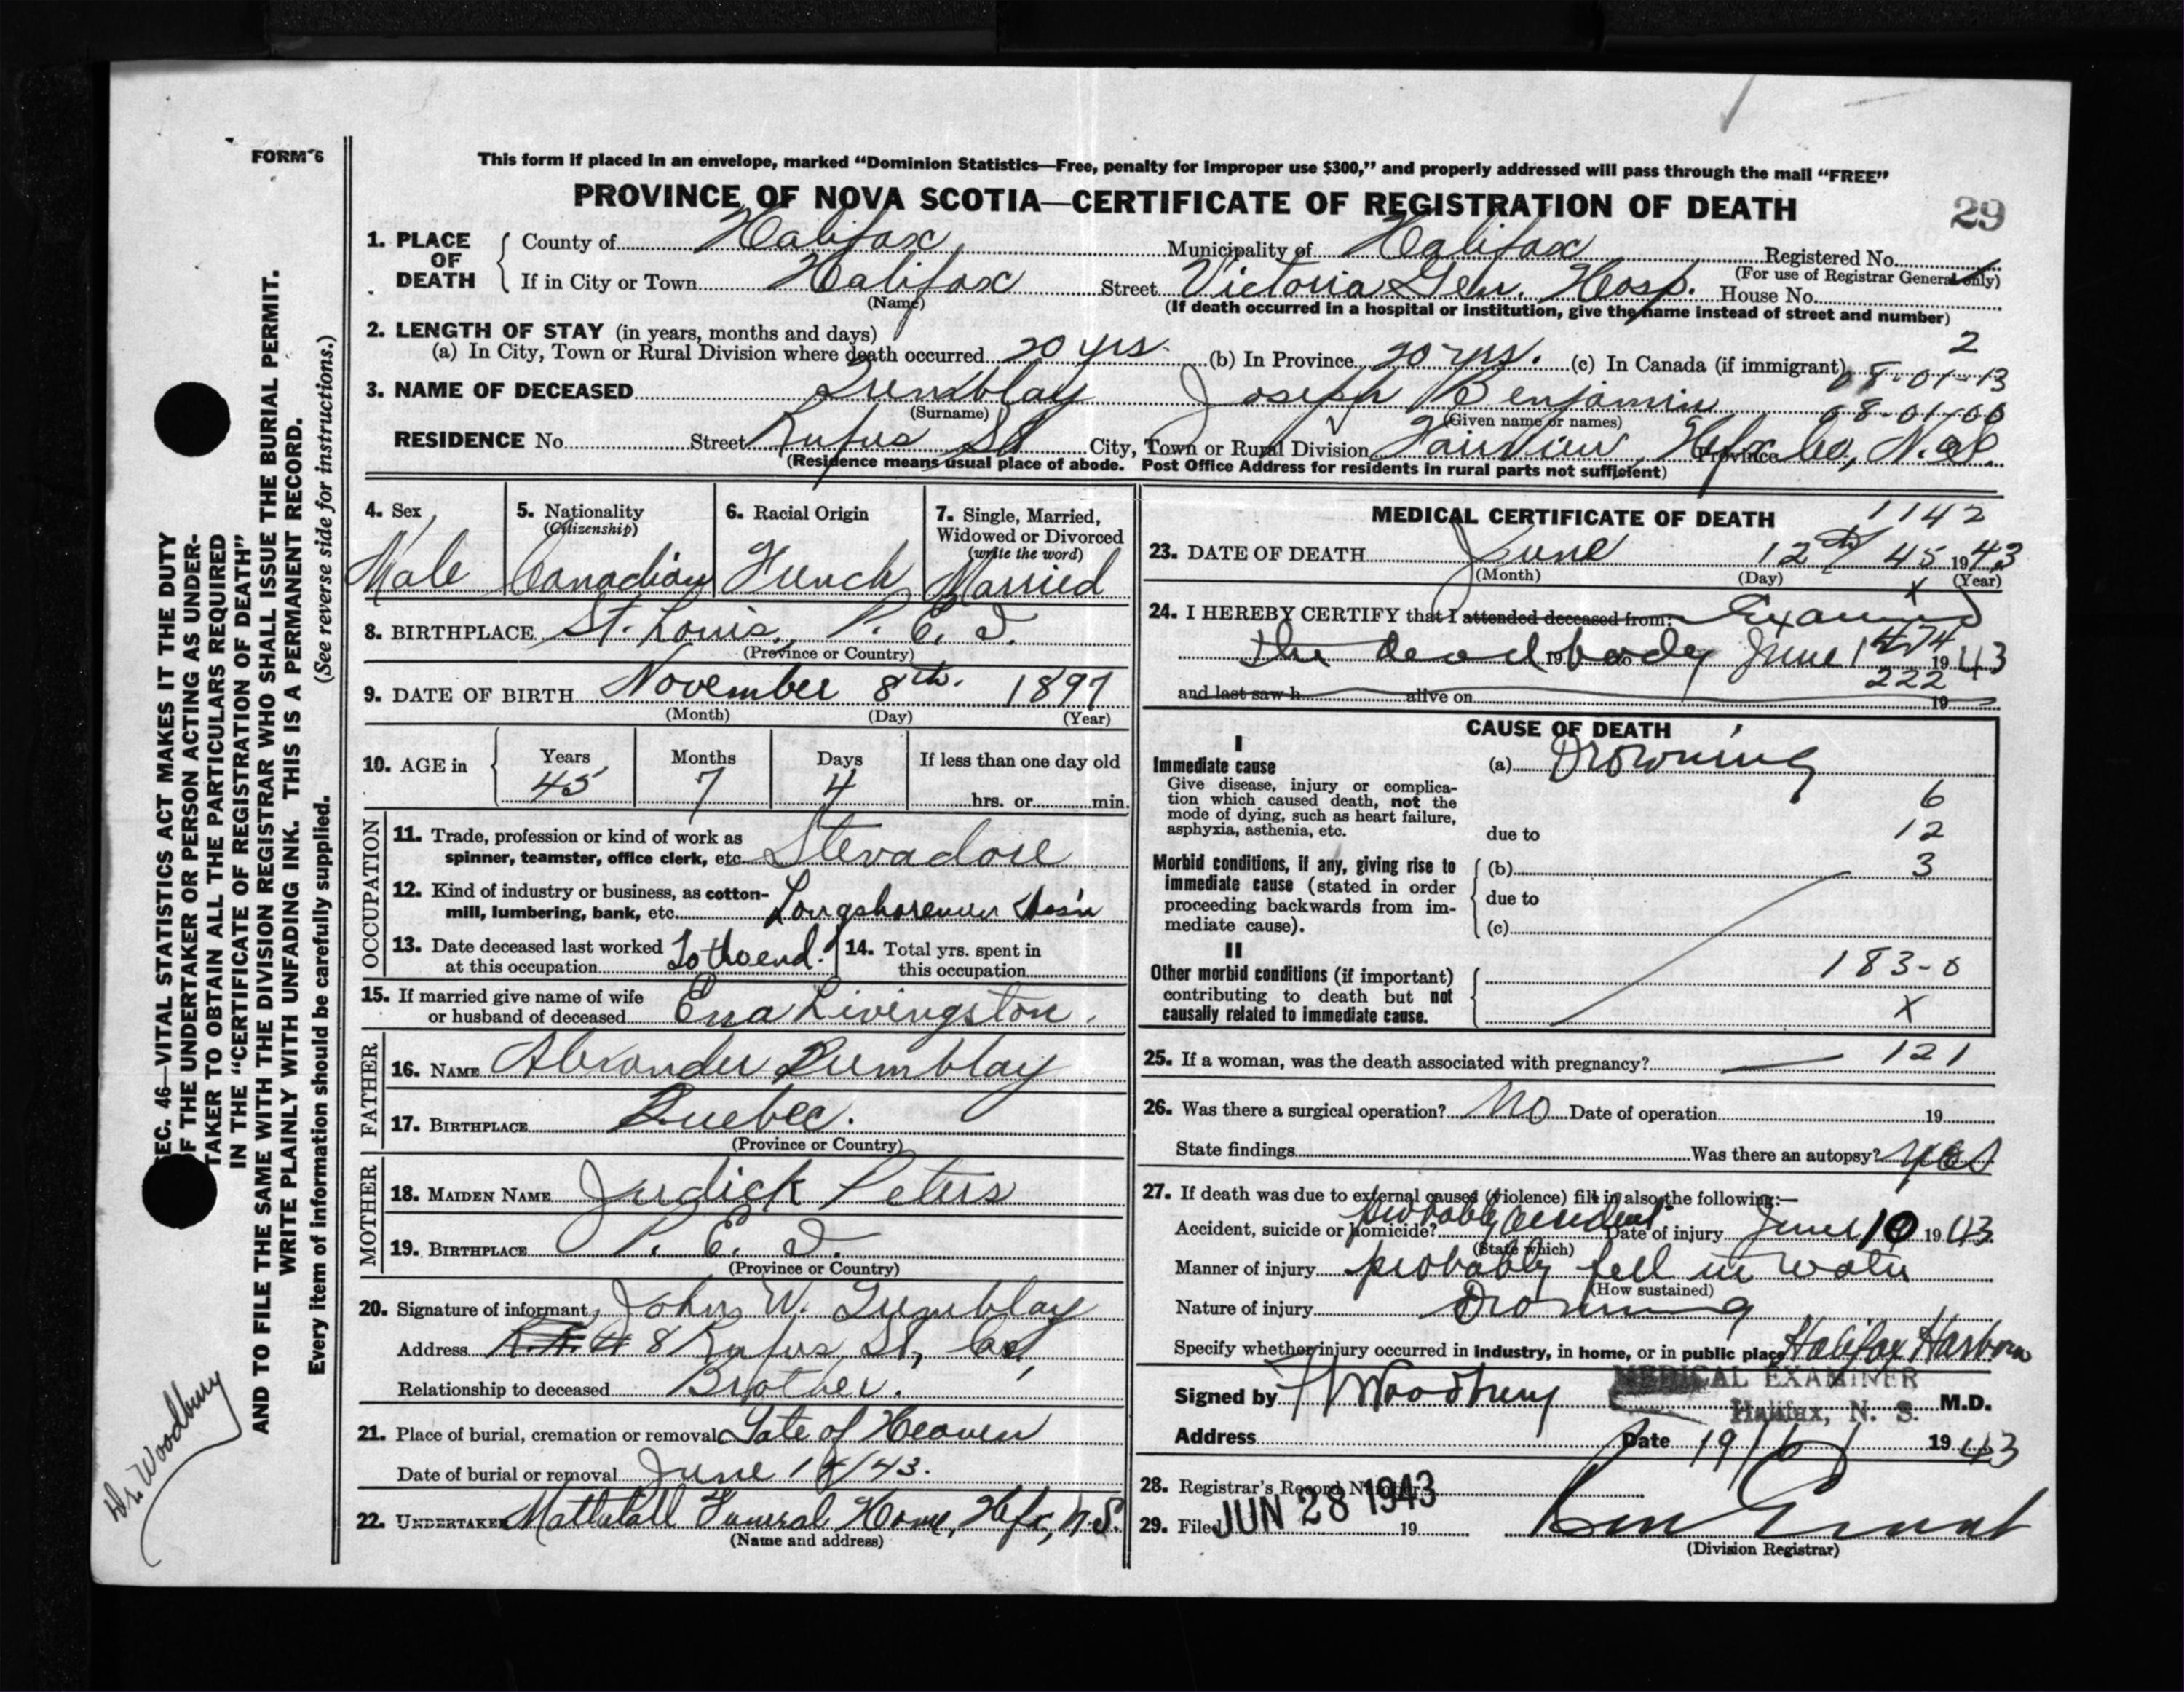 FORM 6
This form if placed in an envelope, marked “Dominion Statistics—Free, penalty for improper use $300,” and properly addressed will pass through the mail “FREE”
PROVINCE OF NOVA SCOTIA—CERTIFICATE OF REGISTRATION OF DEATH
29
1. PLACE OF DEATH County of Halifax Municipality of Halifax Registered No.
(For use of Registrar General only)
If in City or Town Halifax Street Victoria Gen. Hosp. House No.
(Name) (If death occurred in a hospital or institution, give the name instead of street and number)
2. LENGTH OF STAY (in years, months and days) 2
(a) In City, Town or Rural Division where death occurred 20 yrs. (b) In Province 20 yrs. (c) In Canada (if immigrant) 08-01-13
3. NAME OF DECEASED Tremblay Joseph Benjamin 08-01-00
(Surname) (Given name or names)
RESIDENCE No. Street Rufus St City, Town or Rural Division Fairview, Hfx Co, N.S. Province
(Residence means usual place of abode. Post Office Address for residents in rural parts not sufficient)
4. Sex Male
5. Nationality (Citizenship) Canadian
6. Racial Origin French
7. Single, Married, Widowed or Divorced (write the word) Married
8. BIRTHPLACE St. Louis, P. E. I.
(Province or Country)
9. DATE OF BIRTH November 8th. 1897
(Month) (Day) (Year)
10. AGE in Years 45 Months 7 Days 4 If less than one day old
hrs. or min.
OCCUPATION
11. Trade, profession or kind of work as
spinner, teamster, office clerk, etc. Stevadore
12. Kind of industry or business, as cotton-
mill, lumbering, bank, etc. Longshoremen Ass'n
13. Date deceased last worked at this occupation To the end. 14. Total yrs. spent in this occupation
15. If married give name of wife
or husband of deceased Ena Livingston.
FATHER
16. NAME Alexander Tremblay
17. BIRTHPLACE Quebec.
(Province or Country)
MOTHER
18. MAIDEN NAME Judick Peters
19. BIRTHPLACE P. E. I.
(Province or Country)
20. Signature of informant John W. Tremblay
Address 8 Rufus St,
Relationship to deceased Brother.
21. Place of burial, cremation or removal Gate of Heaven
Date of burial or removal June 14/43.
22. UNDERTAKER Mattatall Funeral Home, Hfx, N.S.
(Name and address)
MEDICAL CERTIFICATE OF DEATH 1142
23. DATE OF DEATH June 12th 45 1943
(Month) (Day) (Year)
x
24. I HEREBY CERTIFY that I attended deceased from: Examined
the dead body June 1 474 1943
19 to 19
222
and last saw h alive on 19
CAUSE OF DEATH
I
Immediate cause (a) Drowning
Give disease, injury or complica-
tion which caused death, not the
mode of dying, such as heart failure,
asphyxia, asthenia, etc. due to
6
12
3
Morbid conditions, if any, giving rise to (b)
immediate cause (stated in order due to
proceeding backwards from im-
mediate cause). (c)
II
Other morbid conditions (if important) 183-0
contributing to death but not
causally related to immediate cause. X
25. If a woman, was the death associated with pregnancy? 121
26. Was there a surgical operation? No Date of operation 19
State findings Was there an autopsy? yes
27. If death was due to external causes (violence) fill in also the following:—
Accident, suicide or homicide? probably accident Date of injury June 10 1943
(State which)
Manner of injury probably fell in water
(How sustained)
Nature of injury Drowning
Specify whether injury occurred in industry, in home, or in public place Halifax Harbour
Signed by Woodbury MEDICAL EXAMINER
Halifax, N. S. M.D.
Address Date 19/6/ 1943
28. Registrar's Record Number
29. Filed JUN 28 1943 19
(Division Registrar)
SEC. 46—VITAL STATISTICS ACT MAKES IT THE DUTY
OF THE UNDERTAKER OR PERSON ACTING AS UNDER-
TAKER TO OBTAIN ALL THE PARTICULARS REQUIRED
IN THE “CERTIFICATE OF REGISTRATION OF DEATH”
AND TO FILE THE SAME WITH THE DIVISION REGISTRAR WHO SHALL ISSUE THE BURIAL PERMIT.
WRITE PLAINLY WITH UNFADING INK. THIS IS A PERMANENT RECORD.
Every item of information should be carefully supplied. (See reverse side for instructions.)
Dr. Woodbury